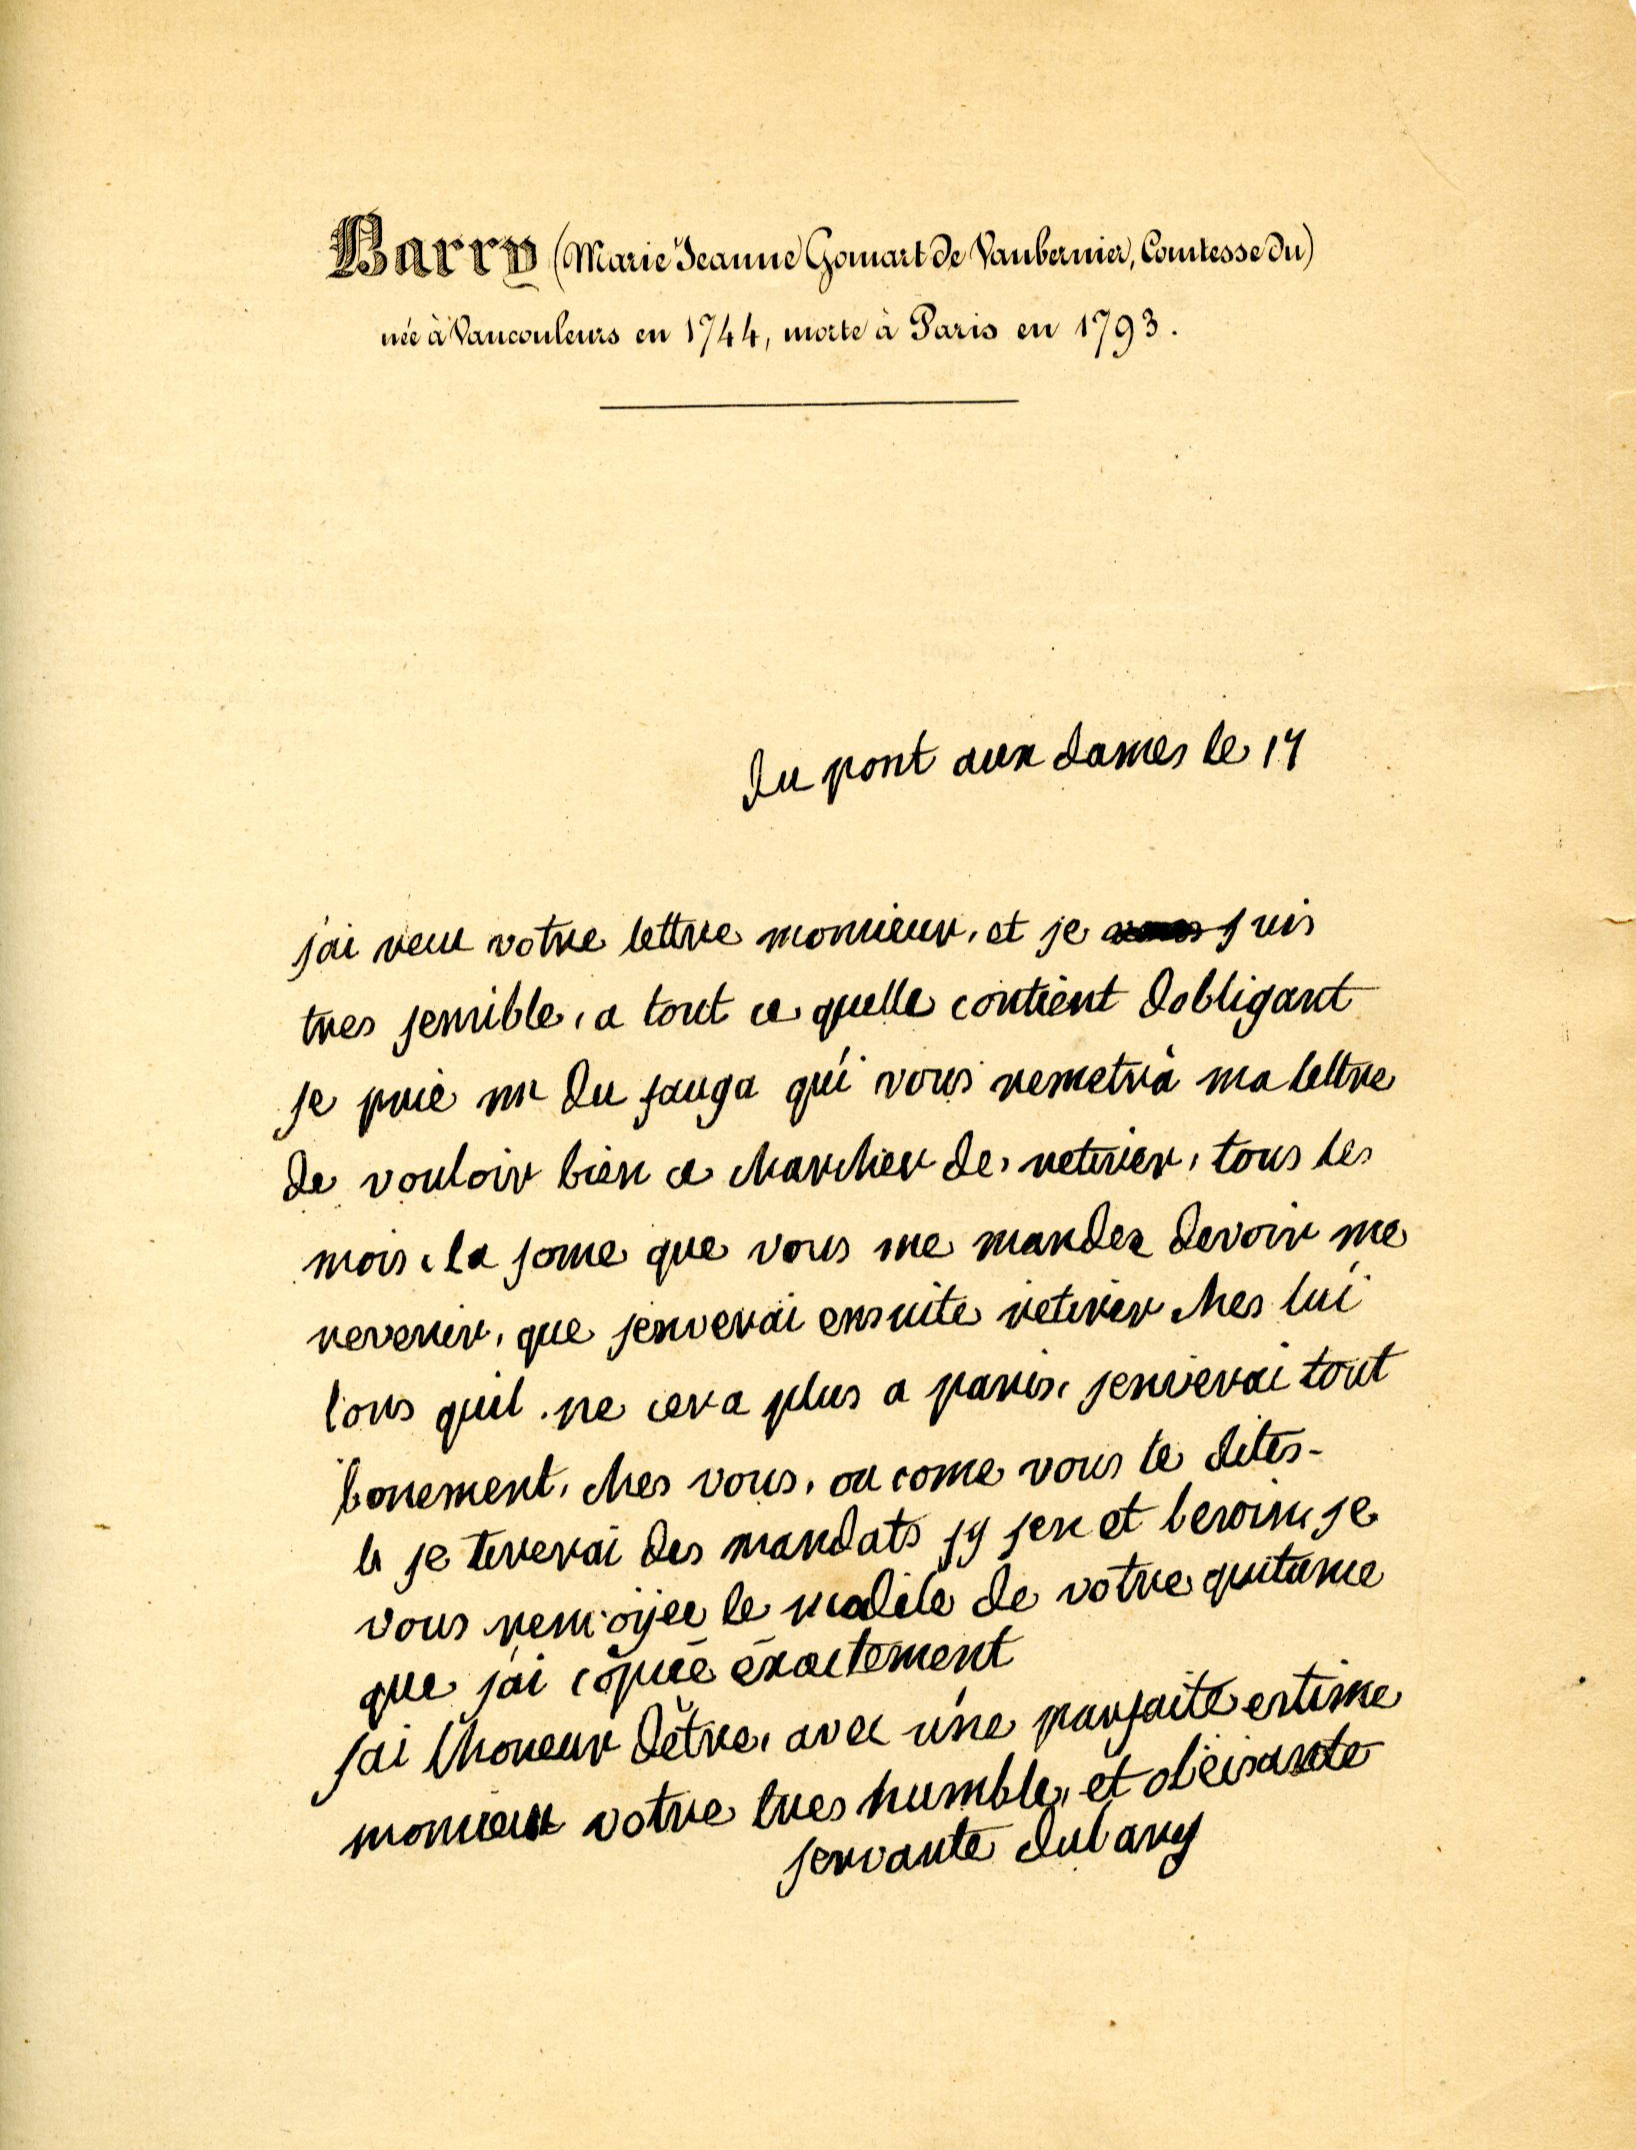 Barry (Marie Jeanne Gomart de Vaubernier, Comtesse du)
née à Vaucouleurs en 1744, morte à Paris en 1793.
du pont aux dames le 17
j'ai recu votre lettre monsieur, et je suis
tres sensible, a tout ce quelle contient dobligant
je prie mr du fauga qui vous remetra ma lettre
de vouloir bien ce charcher de, retirer, tous les
mois, la some que vous me mandez devoir me
revenir, que jenverai ensuite retirer ches lui
lors quil ne cera plus a paris, jenverai tout
bonement, ches vous, ou come vous le dites-
je tirerai des mandats sy jen et besoin, je
vous renvoyee le modele de votre quitance
que j'ai copiée éxactement
jai lhoneur dêtre, avec une parfaite estime
monsieur votre tres humble, et obeisante
servante dubarry